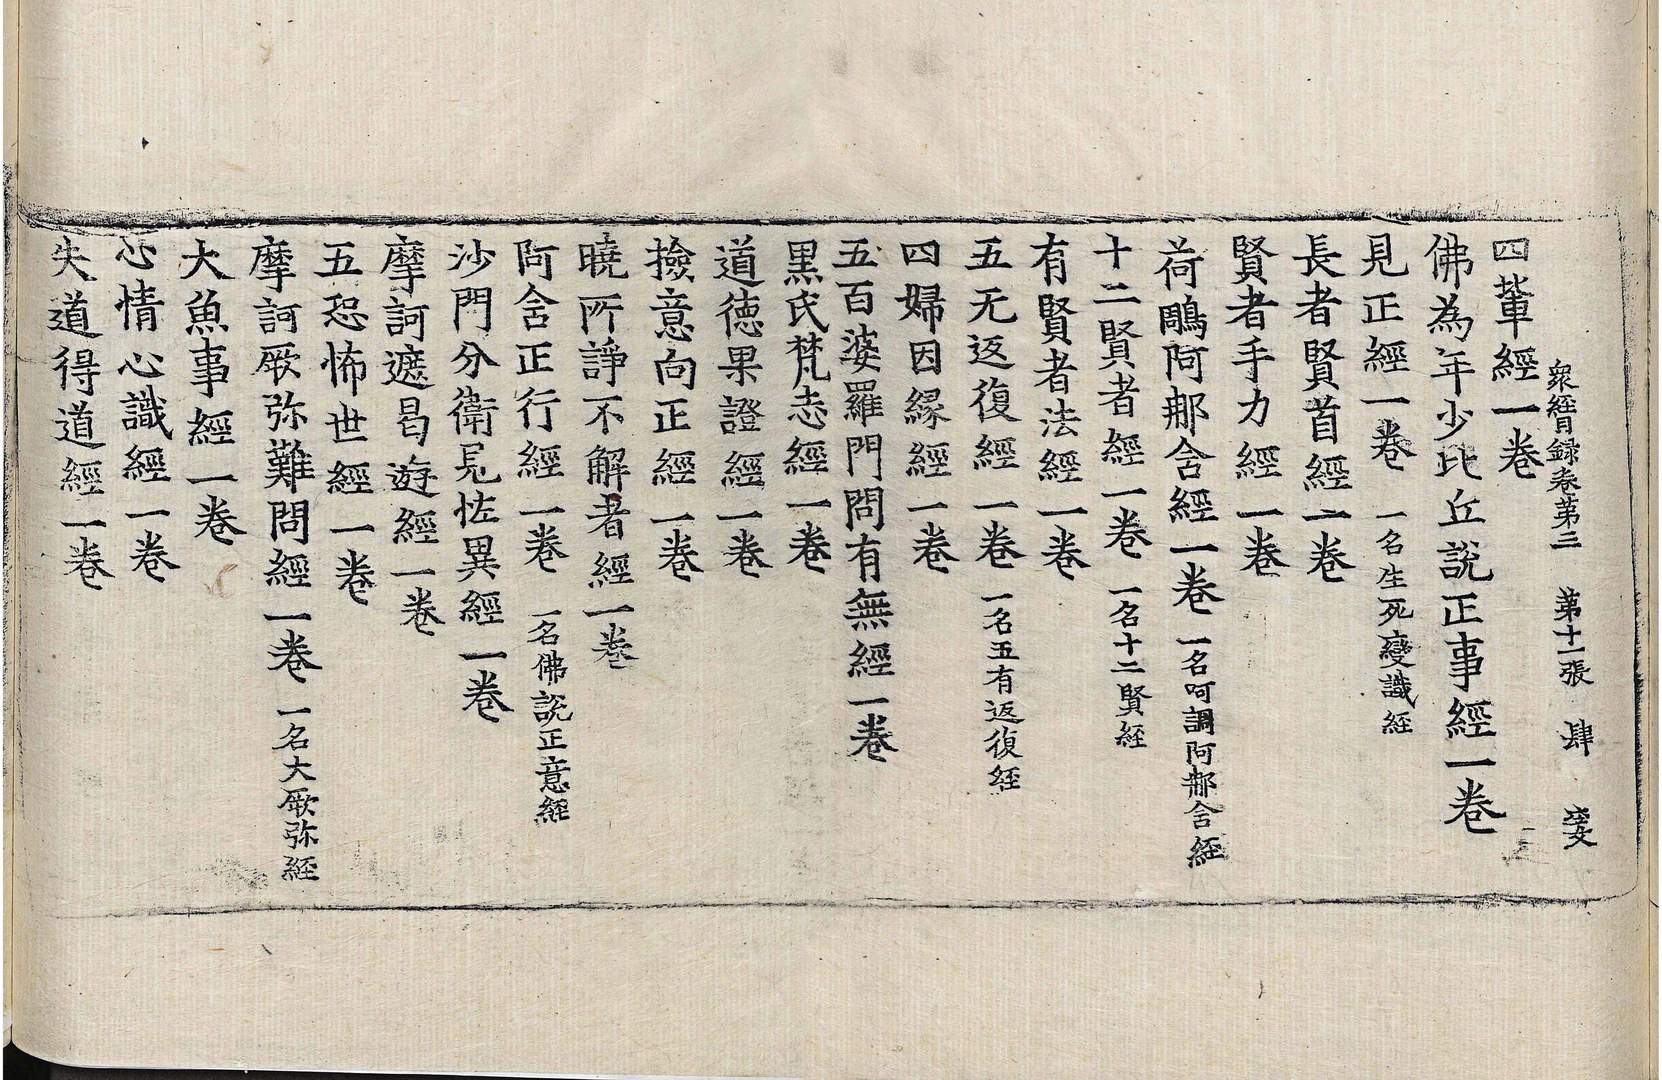 衆經目録卷第三　第十一張　肆
四輩經一卷
佛為年少比丘說正事經一卷
見正經一卷　一名生死變識經
長者賢首經一卷
賢者手力經一卷
荷鵰阿那舍經一卷　一名呵調阿那含經
十二賢者經一卷　一名十二賢經
有賢者法經一卷
五无返復經一卷　一名五有返復經
四婦因緣經一卷
五百婆羅門問有無經一卷
黑氏梵志經一卷
道德果證經一卷
撿意向正經一卷
曉所諍不解者經一卷
阿含正行經一卷　一名佛說正意經
沙門分衛見恠異經一卷
摩訶遮曷遊經一卷
五恐怖世經一卷
摩訶厥弥難問經一卷　一名大厥弥經
大魚事經一卷
心情心識經一卷
失道得道經一卷